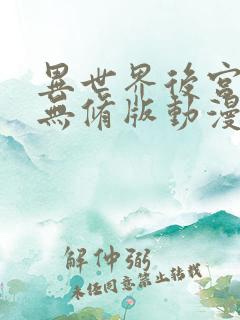 異世界後宮
無修版動漫
解仲弼
未经同意禁止转载